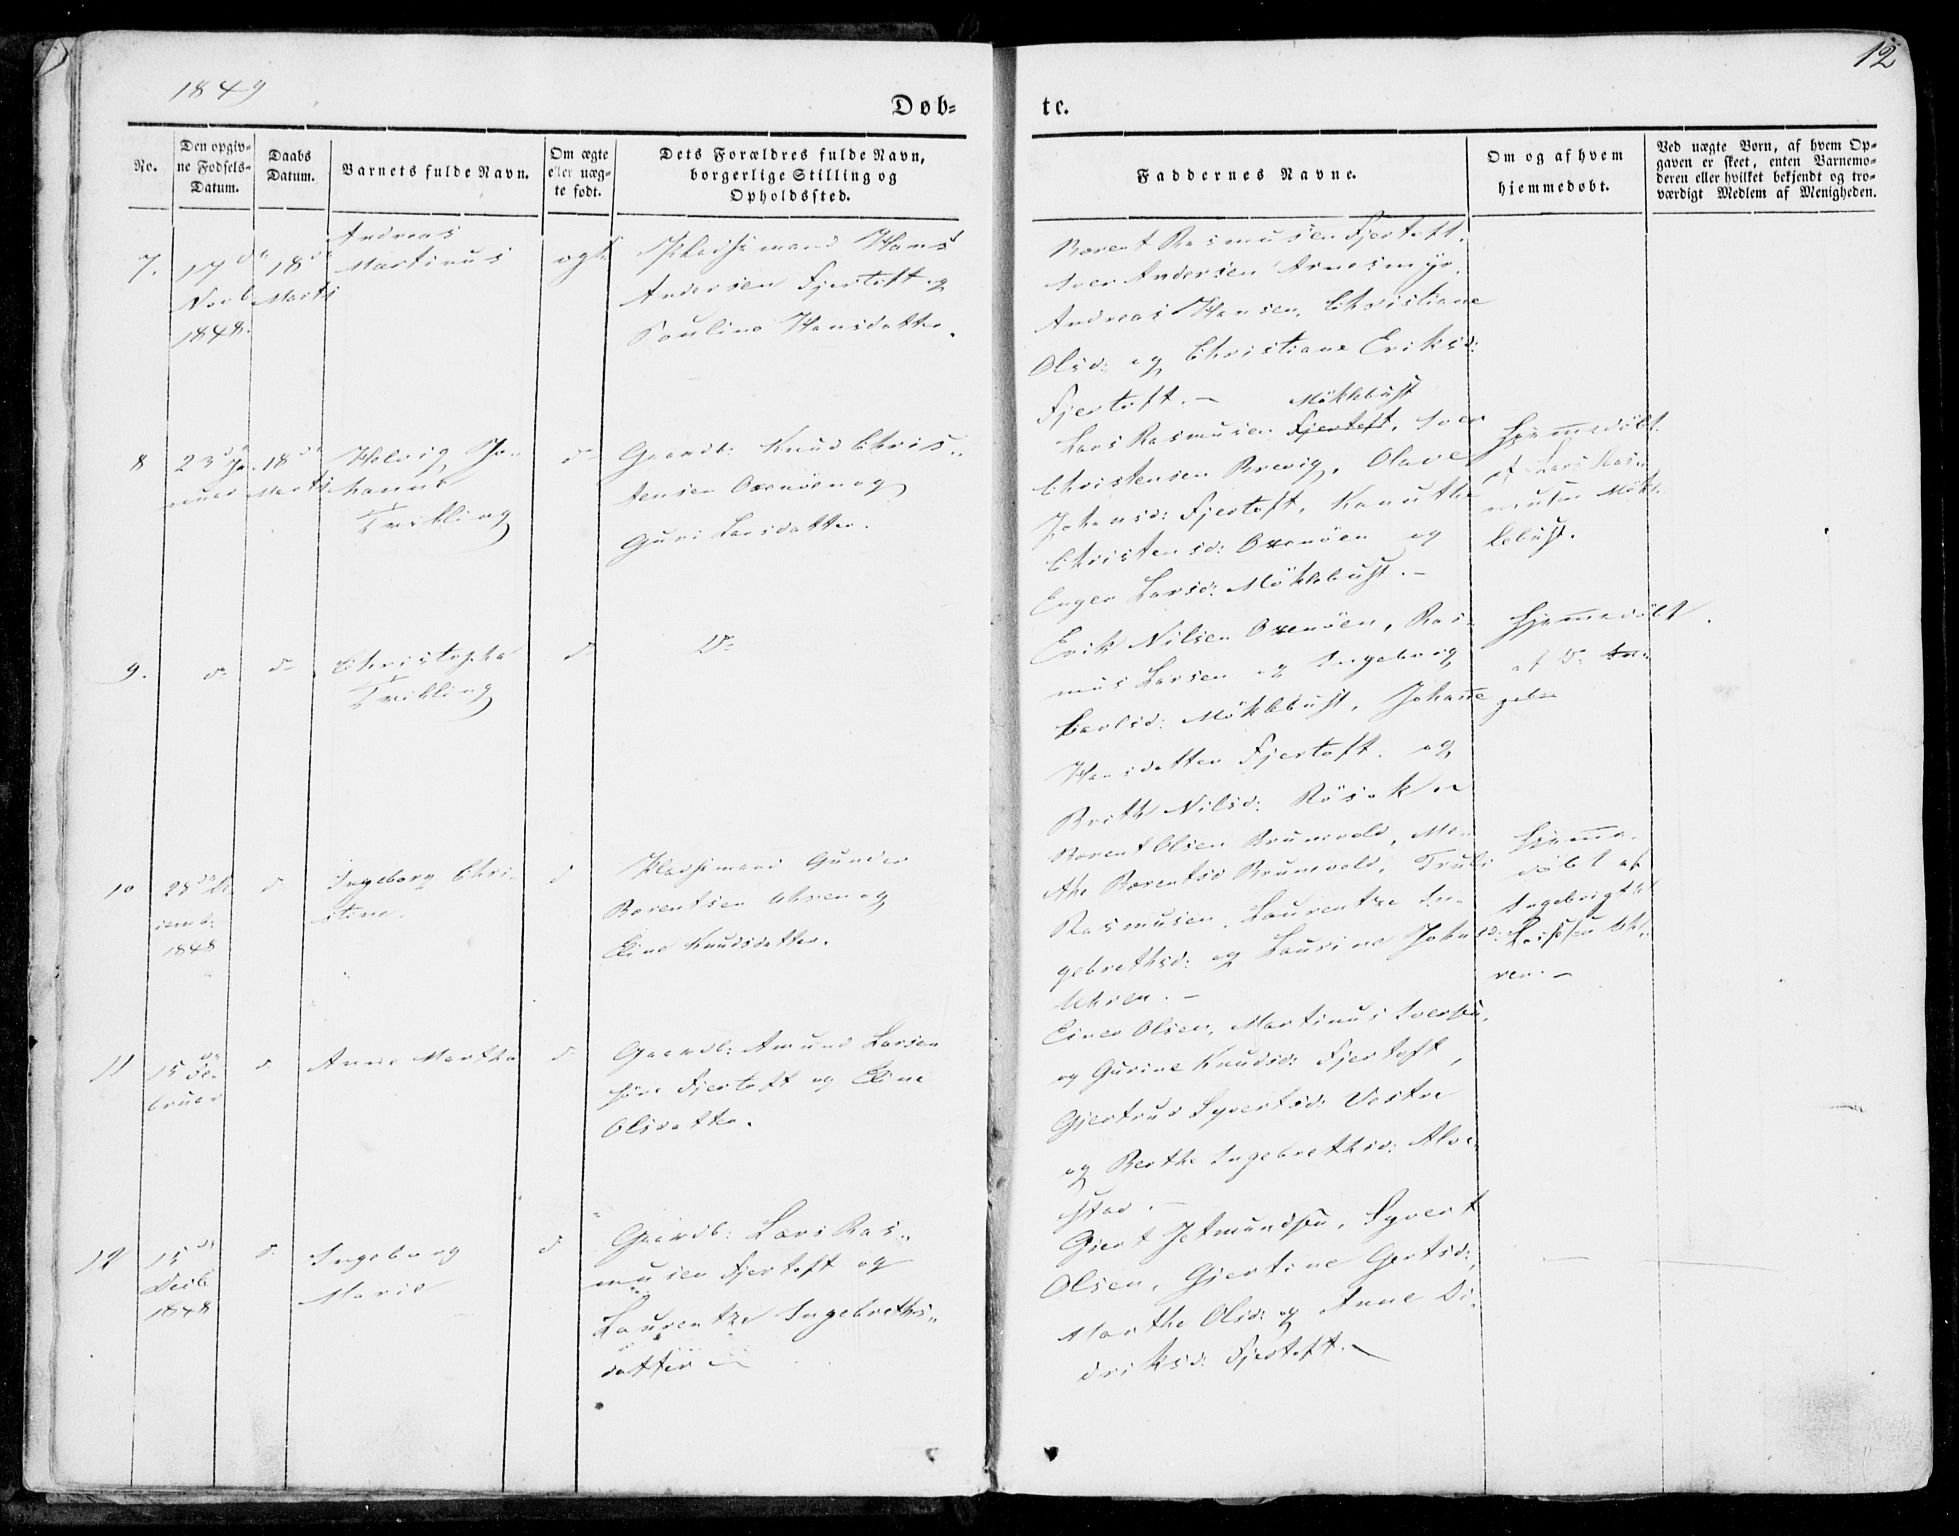 1849
12
Døb-
te.
No.
Den opgiv-
ne Fødsels-
Datum.
Daabs
Datum.
Barnets fulde Navn.
Om ægte
eller uæg-
te født.
Dets Forældres fulde Navn,
borgerlige Stilling og
Opholdssted.
Faddernes Navne.
Om og af hvem
hjemmedøbt.
Ved uægte Børn, af hvem Op-
gaven er skeet, enten Barnemo-
deren eller hvilket bekjendt og tro-
værdigt Medlem af Menigheden.
7.
17de
Novb
1848.
18de
Marts
Andreas
Martinus
ægt.
Pladsmand Hans
Andersen Fjertoft og
Pauline Hansdatter.
Berent Rasmusen Fjertoft,
Iver Andersen Arnesmyr,
Andreas Hansen, Christiane
Olsd: og Christiane Eriksd:
Fjertoft. -
8
23de Ja-
nuar
18de
Marts
Helvig Jo-
hanne
Trilling
do
Gaardb: Knud Chris-
tensen Oxenöen og
Guri Larsdatter.
Möklebust
Lars Rasmusen Fjertoft, Iver
Christensen Brevig, Olave
Johansd: Fjertoft, Kanutte
Christensd: Oxenöen og
Inger Larsd: Möklebust. -
Hjemmedöbt
af Lars Ras-
musen Mök-
lebust.
9.
do
do
Christopher
Trilling
do
Do
Erik Nilsen Oxenöen, Ras-
mus Larsen og Ingeborg
Carlsd: Möklebust, Johanne
Hansdatter Fjertoft og
Brith Nilsd: Rösok
Hjemmedöbt
af Do
10
28de De-
cemb:
1848
do
Ingeborg Chri-
stine.
do
Pladsmand Gunder
Berentsen Uhren og
Eline Knudsdatter.
Berent Olsen Brunvold, Ma-
the Berentsd Brunvold, Truls
Rasmusen, Laurentze In-
gebrethsd: og Laurine Johnsd:
Uhren. -
Hjemme-
döbt af
Ingebrigt
Larssen Uh-
ren. -
11
15de Fe-
bruar
do
Anne Martha
do
Gaardb: Amund Larsen
Fjertoft og Eline
Olsdatter.
Einer Olsen, Martinus Iverssen,
og Gurine Knudsd: Fjertoft,
Gjertrud Syvertsd: Vestre
og Berthe Ingebrethsd: Alve-
stad. -
12
15de
Decb
1848
do
Ingeborg
Marie
do
Gaardb: Lars Ras-
musen Fjertoft og
Laurentze Ingebreths-
datter
Gjert Jetmundsen, Syvert
Olsen, Gjertine Gjertsd:,
Marthe Olsd: og Anne Di-
driksd: Fjertoft. -